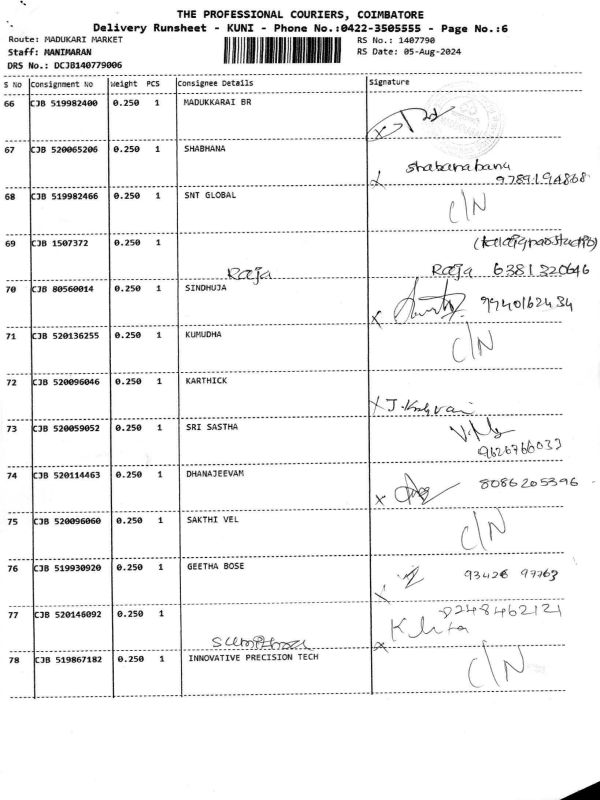 THE PROFESSIONAL COURIERS, COIMBATORE
Delivery Runsheet - KUNI - Phone No.:0422-3505555 - Page No.:6
Route: MADUKARI MARKET RS No.: 1407790
Staff: MANIMARAN RS Date: 05-Aug-2024
DRS No.: DCJB140779006
S No Consignment No Weight PCS Consignee Details Signature
66 CJB 519982400 0.250 1 MADUKKARAI BR
67 CJB 520065206 0.250 1 SHABHANA
shabanabanu
9789194868
68 CJB 519982466 0.250 1 SNT GLOBAL C/N
69 CJB 1507372 0.250 1
Raja Raja 6381320646
70 CJB 80560014 0.250 1 SINDHUJA 9940162434
71 CJB 520136255 0.250 1 KUMUDHA C/N
72 CJB 520096046 0.250 1 KARTHICK
73 CJB 520059052 0.250 1 SRI SASTHA
9626766033
74 CJB 520114463 0.250 1 DHANAJEEVAM 8086205396
75 CJB 520096060 0.250 1 SAKTHI VEL C/N
76 CJB 519930920 0.250 1 GEETHA BOSE 93426 97763
77 CJB 520146092 0.250 1
78 CJB 519867182 0.250 1 INNOVATIVE PRECISION TECH C/N